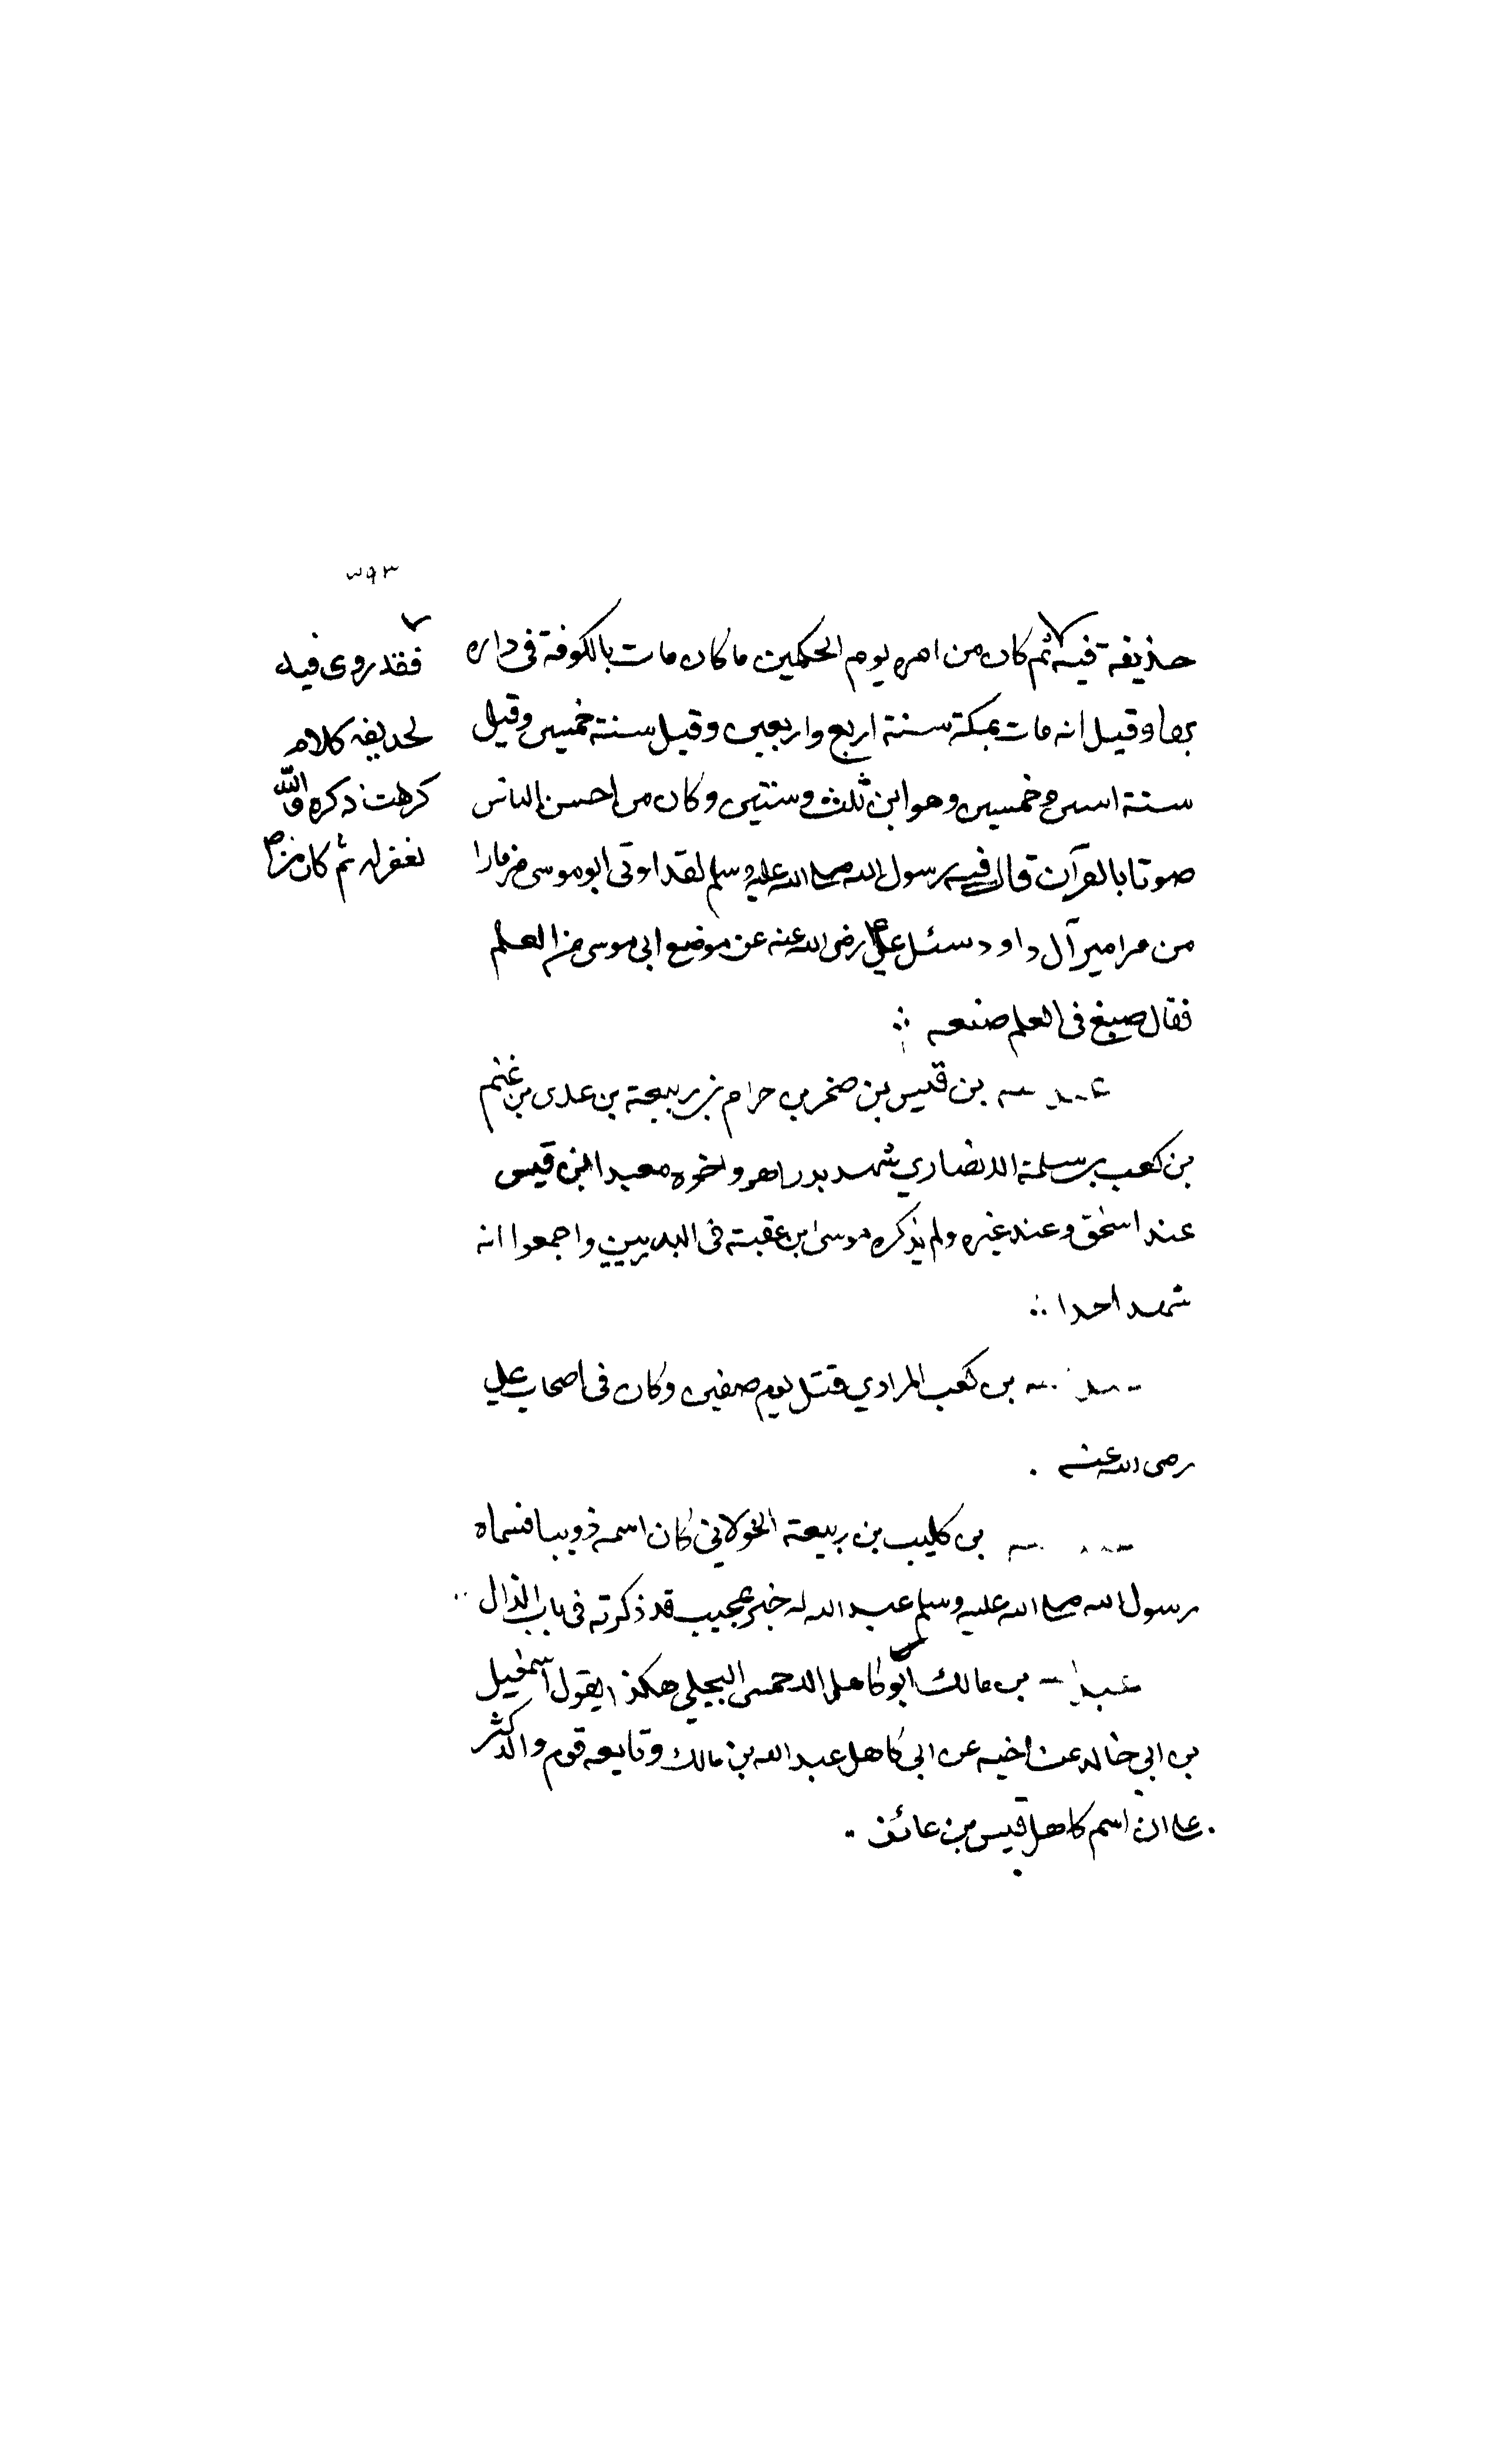 ٣٩٣
حذيفة فيه ثم كان من امره يوم الحكمين ما كان مات بالكوفة فى داره
بها وقيل انه مات بمكة سنة اربع واربعين وقيل سنة خمسين وقيل
سنة اسى وخمسين وهو ابن ثلث وستين وكان من احسن الناس
صوتا بالقرآن قال فيه رسول الله صلى الله عليه وسلم لقد اوتى ابو موسى مزمارا
من مزامير آل داود سئل علي رضى الله عنه عن موضع ابى موسى من العلم
فقال صبغ فى العلم صبغه
بن قيس بن صخر بن حرام بن ربيعة بن عدى بن غنم
بن كعب بن سلمة الانصاري شهد بدرا هو واخوه معبد ابن قيس
عند اسحق وعند غيره ولم يذكره موسى بن عقبة فى البدريين واجمعوا انه
شهد احدا
بن كعب المرادي قتل يوم صفين وكان فى اصحاب علي
رضى الله عنه
بن كليب بن ربيعة الخولاني كان اسمه ذويبا فسماه
رسول الله صلى الله عليه وسلم عبد الله له خبر عجيب قد ذكرته فى باب الذال
بن مالك ابو كاهل الاحمسى البجلي هكذا يقول اسمعيل
بن ابي خالد عن اخيه عن ابى كاهل عبد الله بن مالك وتابعه قوم والاكثر
على ان اسم كاهل قيس بن عائذ
فقد روى فيه
لحذيفه كلام
كرهت ذكره والله
يغفر له ثم كان من